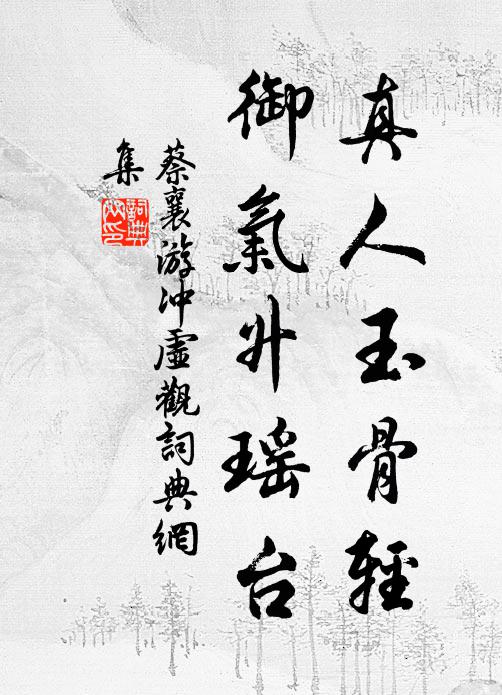 真人玉骨輕
御氣升瑶台
蔡襄游冲虛觀詞典網
集
詞典
网印